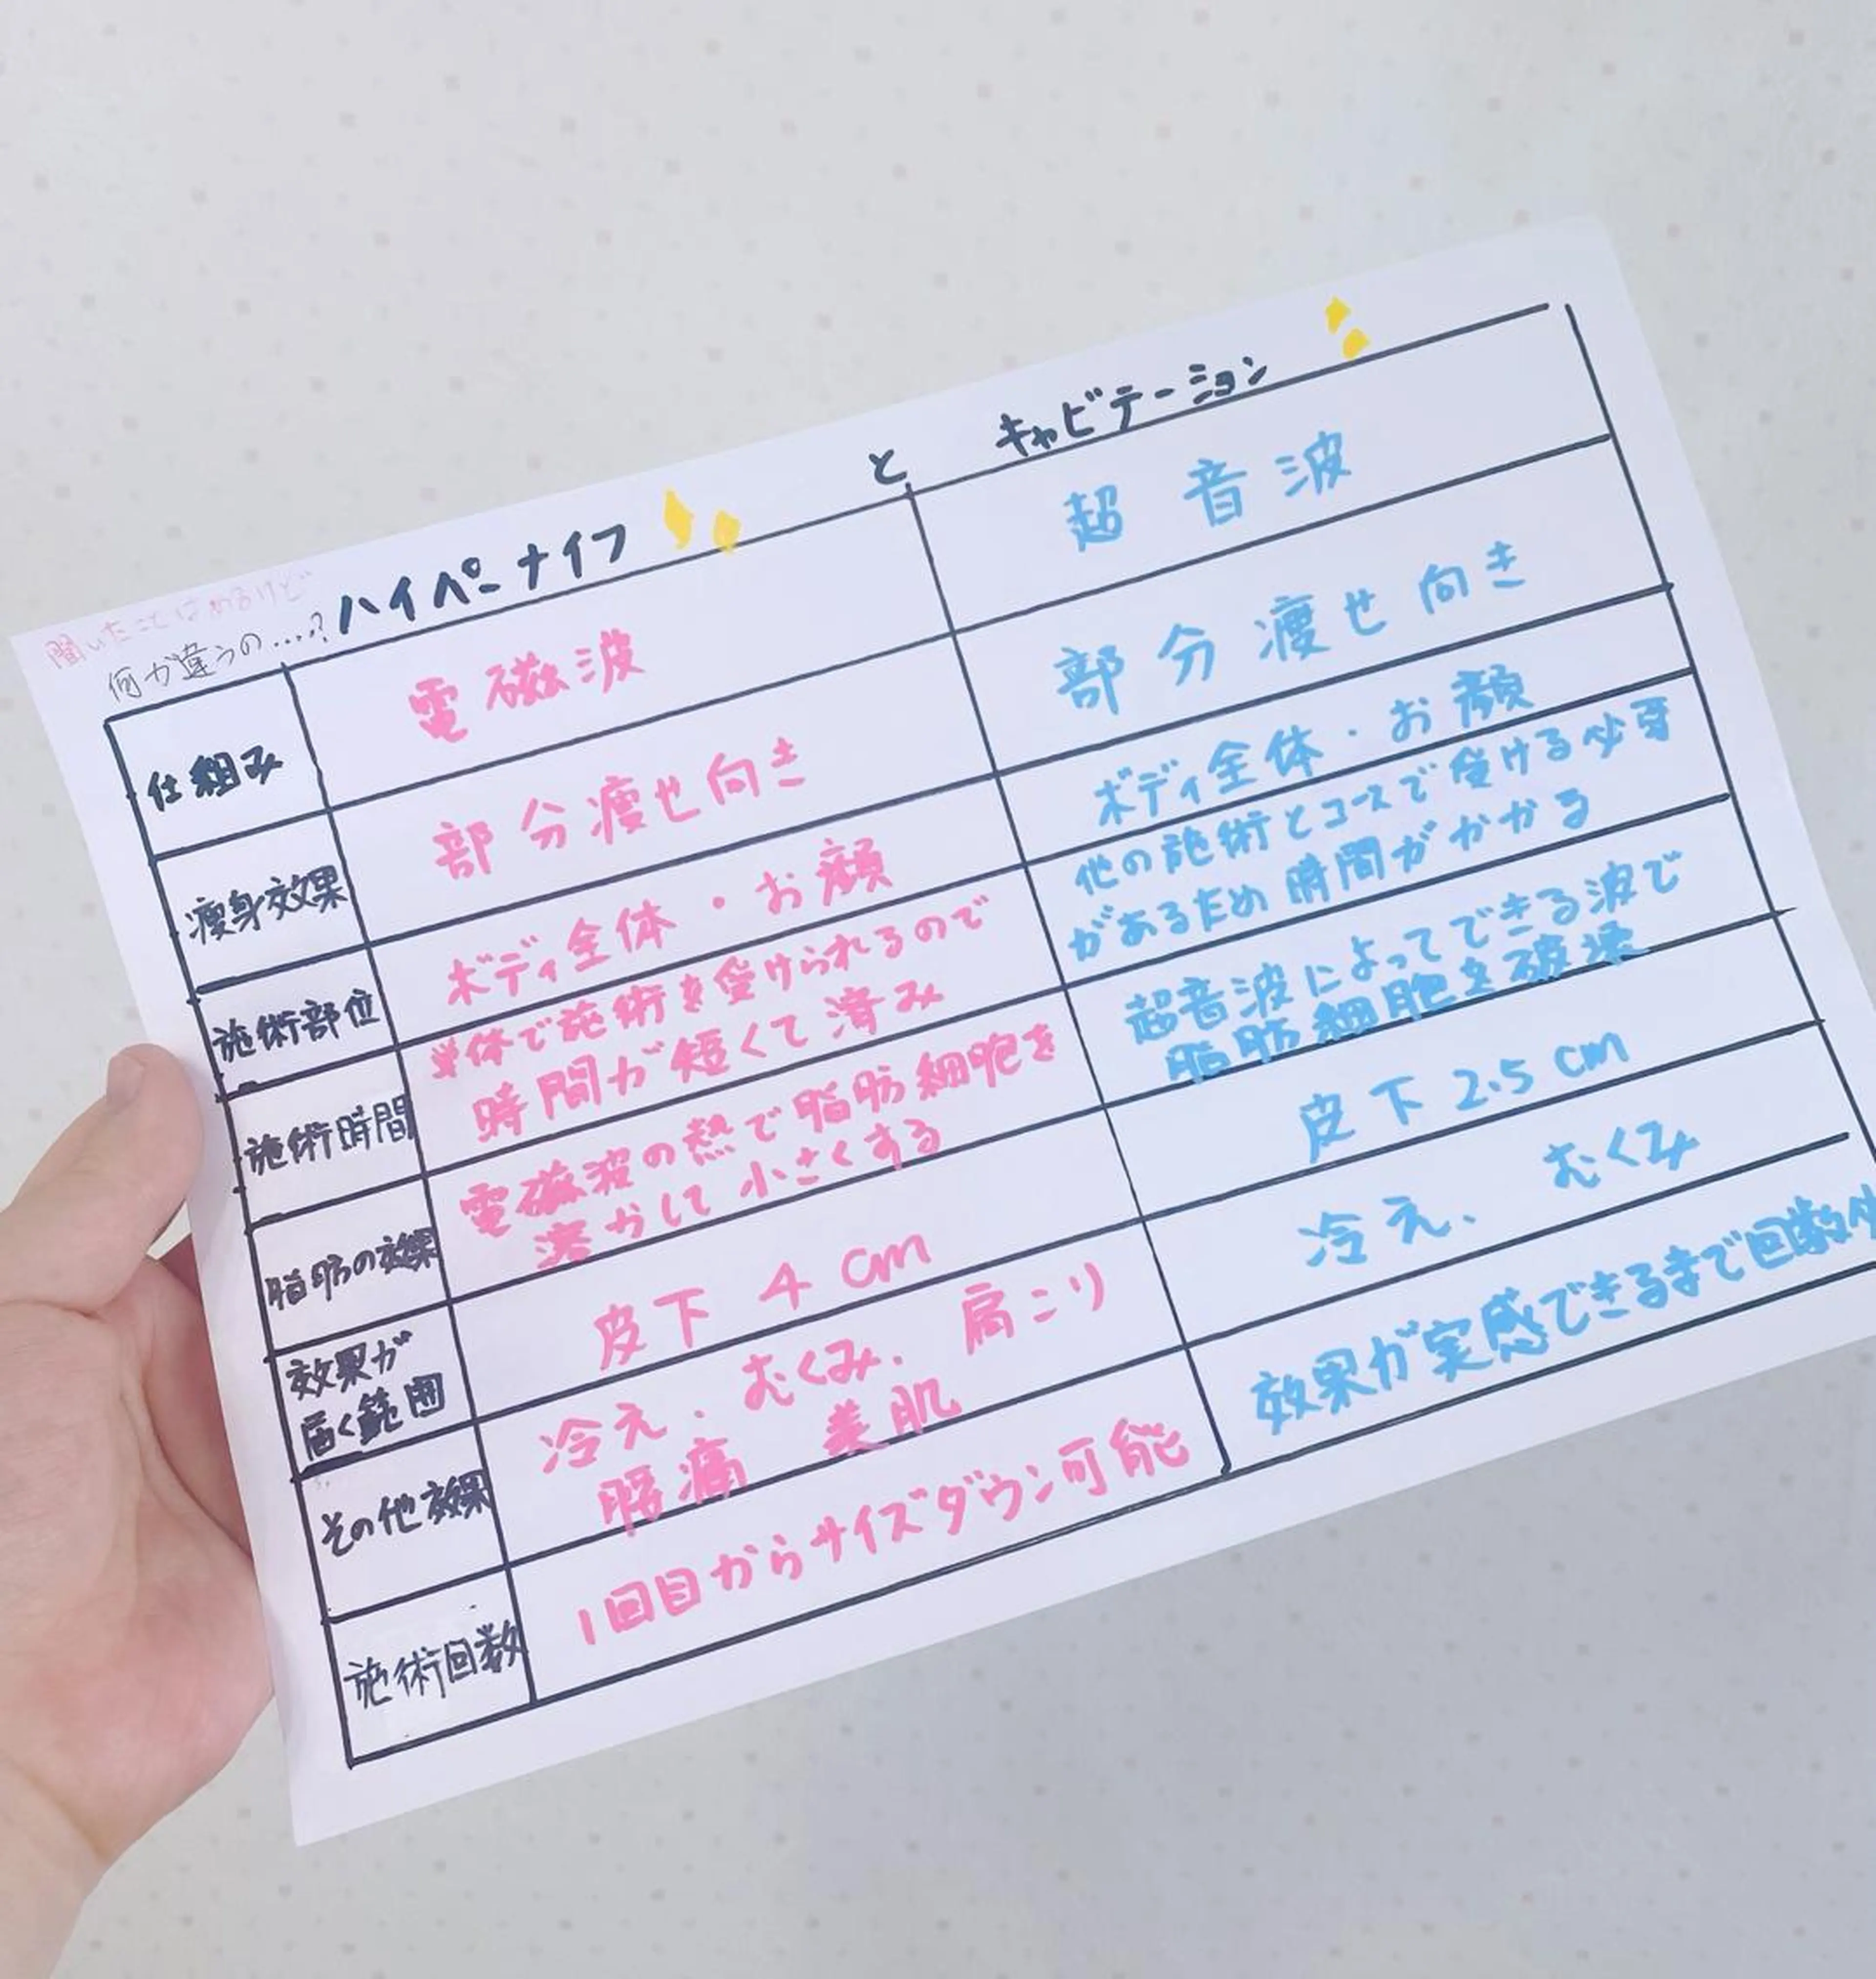 聞いたことはあるけど
何が違うの....?
ハイパーナイフ と キャビテーション
仕組み
電磁波
超音波
痩身効果
部分痩せ向き
部分痩せ向き
施術部位
ボディ全体・お顔
ボディ全体・お顔
施術時間
単体で施術を受けられるので
時間が短くて済み
他の施術とコースで受ける必要
があるため時間がかかる
脂肪の効果
電磁波の熱で脂肪細胞を
溶かして小さくする
超音波によってできる波で
脂肪細胞を破壊
効果が
届く範囲
皮下 4cm
皮下 2.5cm
その他効果
冷え、むくみ、肩こり
腰痛 美肌
冷え、むくみ
施術回数
1回目からサイズダウン可能
効果が実感できるまで回数